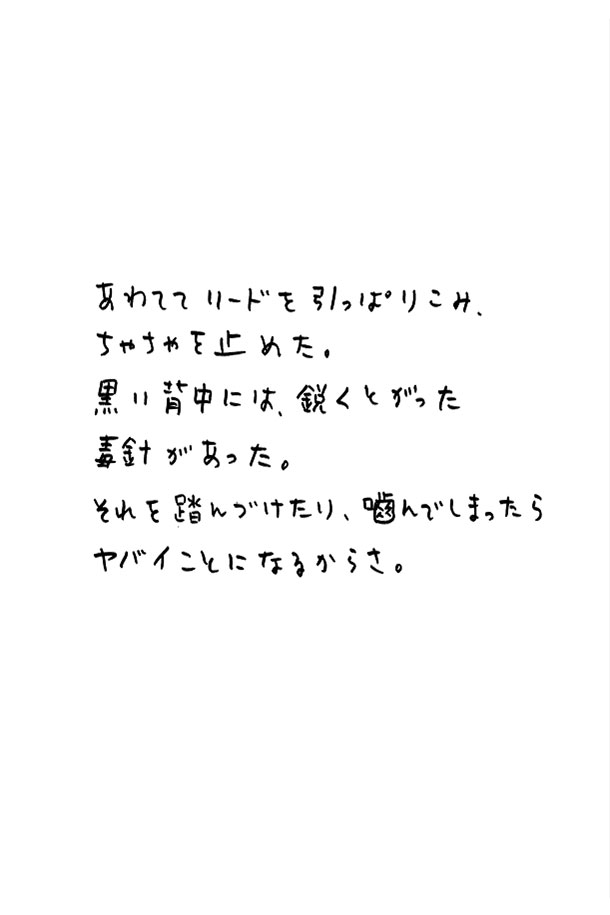 あわててリードを引っぱりこみ、
ちゃちゃを止めた。
黒い背中には、鋭くとがった
毒針があった。
それを踏んづけたり、噛んでしまったら
ヤバイことになるからさ。